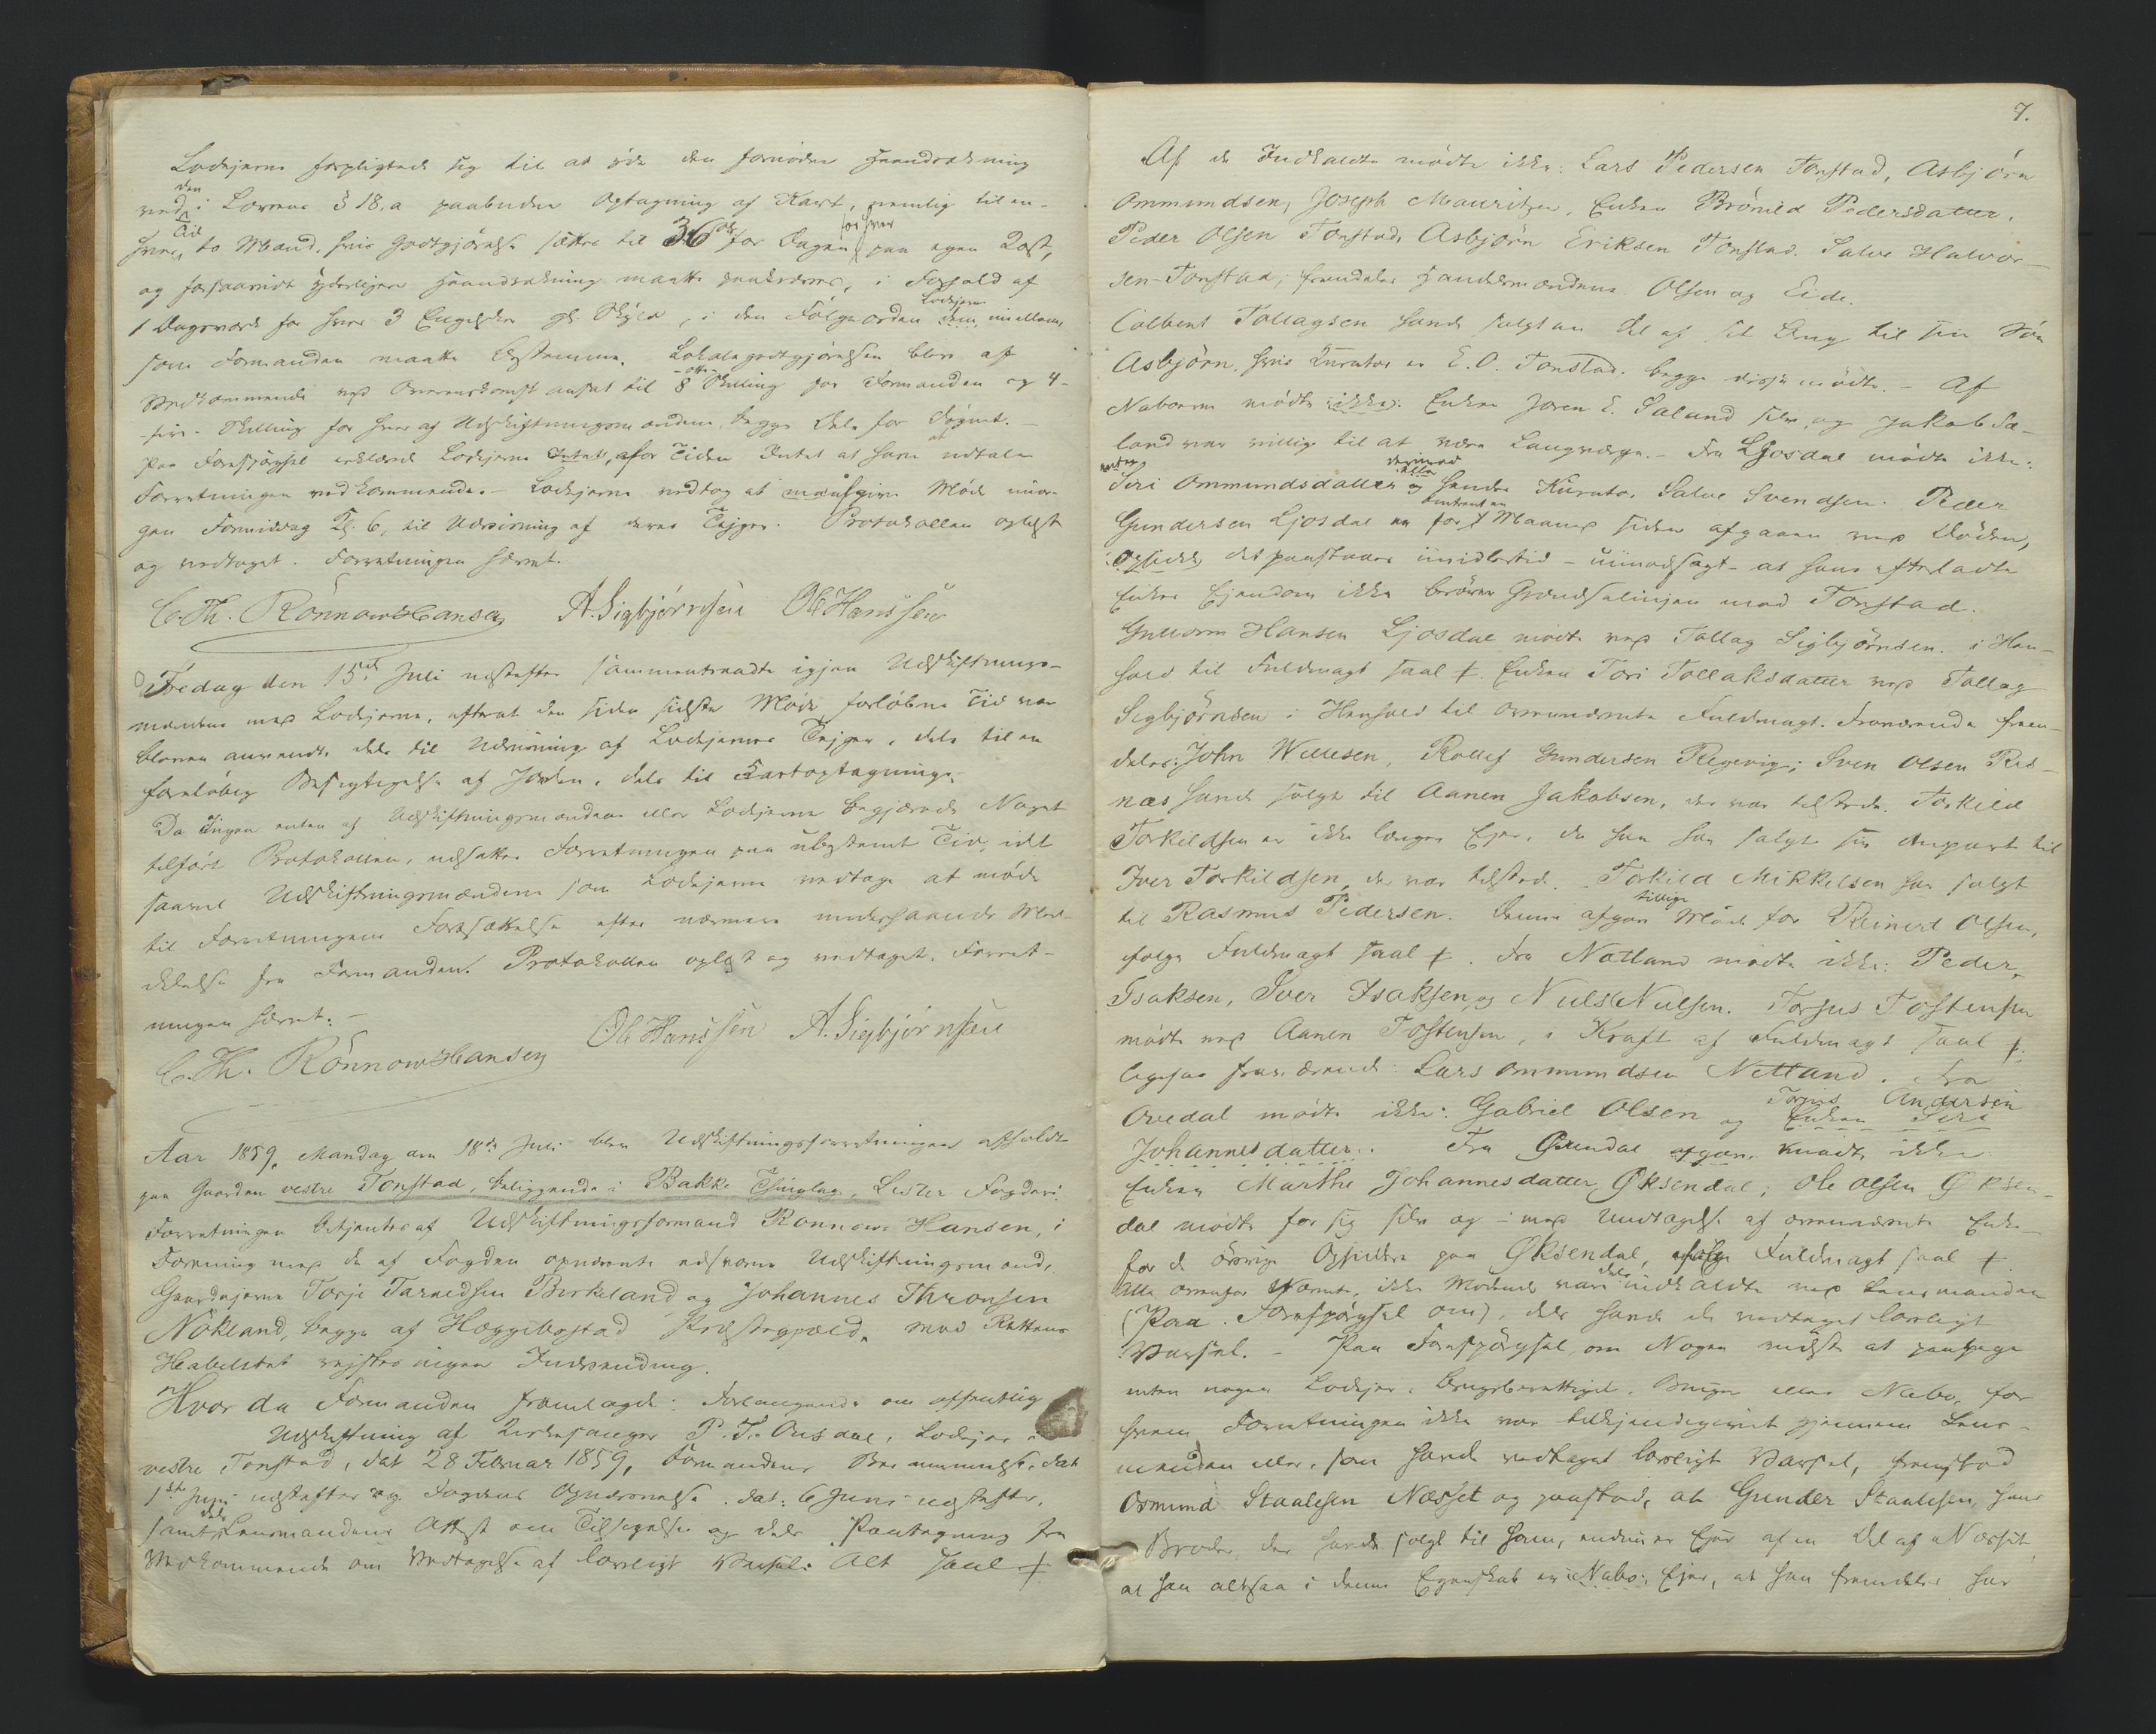 Lodejerne forpligtede sig til at yde den fornødne Haandrækning
ved den i Lovens § 18, a paabudne Optagning af Kart, nemlig til en-
hver Tid to Mand, hvis Godtgjørelse sættes til 36 sk. for Dagen for hver paa egen Kost,
og forsaavidt yderligere Haandrækning maatte paakræves, i Forhold af
1 Dagsværk for hver 3 Engelsker gl. Skyld, i den Følgeorden Lodejerne imellem,
som Formanden maatte bestemme. Lokalegodtgjørelsen blev af
Vedkommende ved Overenskomst ansat til 8 -otte- Skilling for Formanden og 4-
-fire- Skilling for hver af Udskiftningsmændene, begge Dele for Døgnet. -
Paa Forespørgsel erklærede Lodejerne for Tiden Intet at have at udtale
Forretningen vedkommende. - Lodejerne vedtog at give Møde mor-
gen Formiddag Kl. 6, til Udvisning af deres Tejger. Protokollen oplæst
og vedtaget. Forretningen hævet.
C. Th. Rönnow Hansen A. Sigbjørnsen Ole Hanssen
Fredag den 15de Juli næstefter sammentraadte igjen Udskiftnings-
mændene med Lodejerne, efterat den siden sidste Møde forløbne Tid var
bleven anvendt dels til Udvisning af Lodejernes Tejger, dels til en
foreløbig Besigtigelse af Jorden, dels til Kartoptagning.
Da Ingen enten af Udskiftningsmændene eller Lodejerne begjærede Noget
tilført Protokollen, udsattes Forretningen paa ubestemt Tid, idet
saavel Udskiftningsmændene som Lodejerne vedtoge at møde
til Forretningens Fortsættelse efter nærmere underhaanden Med-
delelse fra Formanden. Protokollen oplæst og vedtaget. Forret-
ningen hævet. -
C. Th. Rönnow Hansen Ole Hanssen A. Sigbjørnsen
Aar 1859, Mandag den 18de Juli blev Udskiftningsforretningen afholdt
paa Gaarden vestre Tonstad, beliggende i Bakke Thinglag, Lister Fogderi.
Forretningen betjentes af Udskiftningsformand Rönnow Hansen, i
Forening med de af Fogden opnævnte edsvorne Udskiftningsmænd,
Gaardejerne Torje Tarandsen Birkeland og Johannes Thronsen
Nökland, begge af Hæggebostad Præstegjæld. Mod Rettens
Habilitet rejstes ingen Indvending.
Hvor da Formanden fremlagde: Forlangende om offentlig
Udskiftning af Kirkesanger P. T. Ousdal, Lodejer i
vestre Tonstad, dat. 28 Februar 1859, Formandens Berammelse, dat.
1ste Juni næstefter og Fogdens Opnævnelse dat. 6 Juni næstefter,
samt dels Lensmandens Attest om Tilsigelse og dels Paategning fra
Vedkommende om Vedtagelse af lovligt Varsel: Alt saal. ⸸
7.
Af de Indkaldte mødte ikke: Lars Pedersen Tonstad, Asbjörn
Ommundsen, Joseph Mauritzen, Enken Brönild Pedersdatter,
Peder Olsen Tonstad, Asbjörn Eriksen Tonstad, Salve Halvor-
sen Tonstad; fremdeles Handelsmændene Olsen og Eide.
Colbent Tollagsen havde solgt en Del af sit Brug til sin Søn
Asbjörn, hvis Kurator er E. O. Tonstad, begge disse mødte. - Af
Naboerne mødte ikke: Enken Joren E. Saland selv, og Jakob Sa-
land var villig til at være Laugværge. - Fra Ljosdal mødte ikke:
Enken Siri Ommundsdatter og derimod hendes Kurator Salve Svendsen. Peder
Gundersen Ljosdal er for omtrent en Maaned siden afgaaet ved Døden,
det paastaaes imidlertid - uimodsagt - at hans efterladte
Enkes Ejendom ikke berører Grændselinjen mod Tonstad.
Guttorm Hansen Ljosdal mødte ved Tollag Sigbjörnsen i Hen-
hold til Fuldmagt saal. ⸸. Enken Tori Tollaksdatter ved Tollag
Sigbjörnsen i Henhold til ovennævnte Fuldmagt. Fraværende frem-
deles: John Willesen, Rollef Gundersen Regevig; Sven Olsen Ris-
næs havde solgt til Aanen Jakobsen, der var tilstede. Torkild
Torkildsen er ikke længer Ejer, da han har solgt sin Anpart til
Iver Torkildsen, der var tilstede. Torkild Mikkelsen har solgt
til Rasmus Pedersen. Denne afgav tillige Møde for Reinert Olsen,
ifølge Fuldmagt saal. ⸸. Fra Netland mødte ikke: Peder
Isaksen, Iver Isaksen og Niels Nielsen. Torjus Tostensen
mødte ved Aanen Tostensen, i Kraft af Fuldmagt saal. ⸸.
ligesaa fraværende Lars Ommundsen Netland. Fra
Ovedal mødte ikke: Gabriel Olsen og Torjus Andersen Enken Siri
Johannesdatter. Fra Øxendal mødte ikke
Enken Marthe Johannesdatter Øksendal; Ole Olsen Øksen-
dal mødte for sig selv og - med Undtagelse af ovennævnte Enke -
for de øvrige Opsiddere paa Øksendal, ifølge Fuldmagt saal. ⸸.
Alle ovenfor Nævnte, ikke Mødende vare dels indkaldte ved Lensmanden
(Paa Forespørgsel om), dels havde de vedtaget lovligt
Varsel. - Paa Forespørgsel, om Nogen vidste at paapege
enten nogen Lodejer, brugsberettiget Bruger eller Nabo, for
hvem Forretningen ikke var tilkjendegivet gjennem Lens-
manden eller, som havde vedtaget lovligt Varsel, fremstod
Osmund Staalesen Næsset og paastod, at Gunder Staalesen, hans
Broder, der havde solgt til ham, endnu er Ejer af en Del af Næsset,
at han altsaa i denne Egenskab er Nabo-Ejer, at han fremdeles har